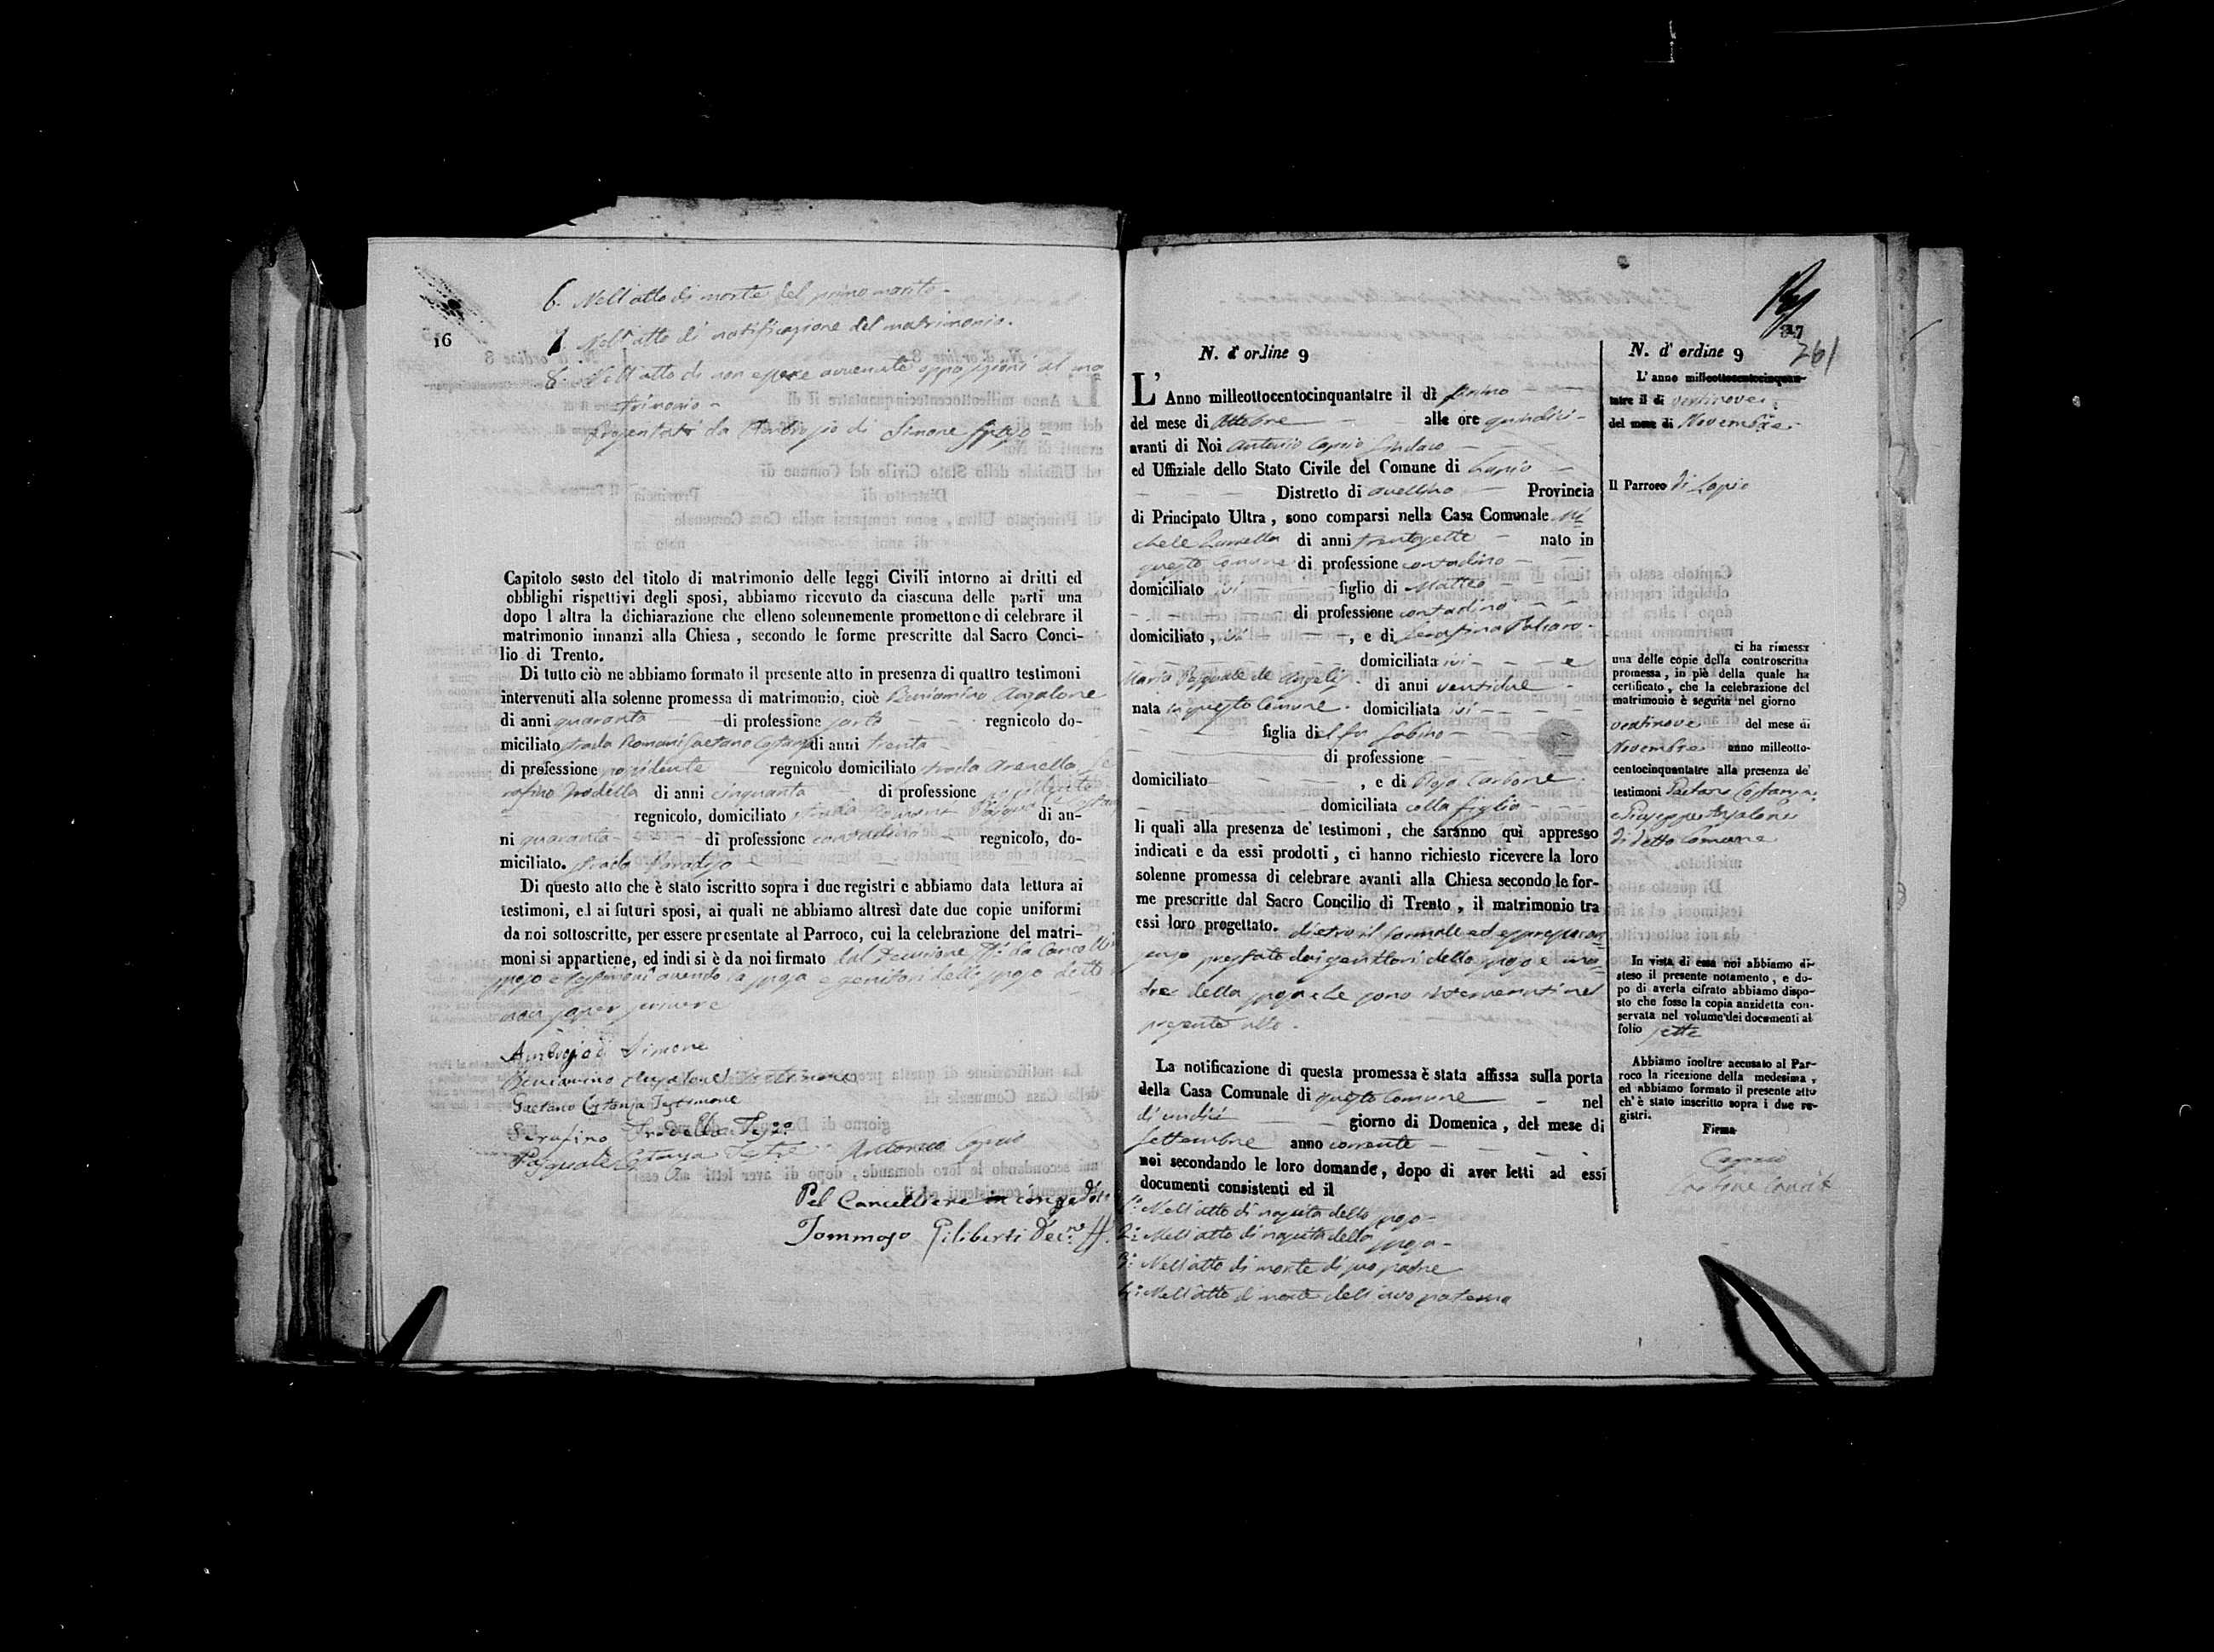 16
6. Nell'atto di morte del primo marito -
7. Nell'atto di notificazione del matrimonio.
8. Nell'atto di non essere avvenute opposizioni al ma
trimonio -
Presentati da Ambrosio di Simone sposo -
Capitolo sesto del titolo di matrimonio delle leggi Civili intorno ai dritti ed
obblighi rispettivi degli sposi, abbiamo ricevuto da ciascuna delle parti una
dopo l altra la dichiarazione che elleno solennemente promettono di celebrare il
matrimonio innanzi alla Chiesa , secondo le forme prescritte dal Sacro Conci-
lio di Trento.
Di tutto ciò ne abbiamo formato il presente atto in presenza di quattro testimoni
intervenuti alla solenne promessa di matrimonio, cioè Beniamino Anzalone
di anni quaranta di professione sarto regnicolo do-
miciliato strada Romani Gaetano Costanza di anni trenta
di professione possidente regnicolo domiciliato strada Arenella Se
rafino Trodella di anni cinquanta di professione possidente
regnicolo, domiciliato strada Pasquale Costanza di an-
ni quaranta di professione contadino regnicolo, do-
miciliato. strada Paradiso
Di questo atto che è stato iscritto sopra i due registri e abbiamo data lettura ai
testimoni, ed ai futuri sposi, ai quali ne abbiamo altresì date due copie uniformi
da noi sottoscritte, per essere presentate al Parroco, cui la celebrazione del matri-
moni si appartiene, ed indi si è da noi firmato dal Decurione da Cancelli
sposo e testimoni avendo la sposa e genitori dello sposo detto
non saper scrivere
Ambrosio di Simone
Beniamino Anzalone Testimone
Gaetano Costanza Testimone
Serafino Trodella
Pasquale Costanza Antonio Caprio
Pel Cancelliere in congedo
Tommaso Giliberti
261
N. d' ordine 9
L' Anno milleottocentocinquantatre il dì primo
del mese di Ottobre alle ore quindici -
avanti di Noi Antonio Caprio Sindaco
ed Uffiziale dello Stato Civile del Comune di Lapio
Distretto di Avellino Provincia
di Principato Ultra , sono comparsi nella Casa Comunale Mi
chele di anni trentasette nato in
questo comune di professione contadino
domiciliato ivi figlio di Matteo
di professione contadino
domiciliato , ivi , e di Serafina
domiciliata ivi e
Maria Pasquale de Angelis di anni ventidue
nata in questo Comune. domiciliata ivi
figlia di el fu Sabino
di professione
domiciliato , e di Rosa Carbone.
domiciliata colla figlia
li quali alla presenza de' testimoni , che saranno quì appresso
indicati e da essi prodotti , ci hanno richiesto ricevere la loro
solenne promessa di celebrare avanti alla Chiesa secondo le for-
me prescritte dal Sacro Concilio di Trento , il matrimonio tra
essi loro progettato. dietro il formale ed espresso con
senso prestato dai genitori dello sposo e ma
dre della sposa che sono intervenuti nel
presente atto.
La notificazione di questa promessa è stata affissa sulla porta
della Casa Comunale di questo Comune nel
dì undici giorno di Domenica , del mese di
Settembre anno corrente
noi secondando le loro domande, dopo di aver letti ad essi
documenti consistenti ed il
1.° Nell'atto di nascita dello sposo -
2.° Nell'atto di nascita della sposa -
3.° Nell'atto di morte di suo padre
4.° Nell'atto di morte dell'avo paterno
N. d' ordine 9
L' anno milleottocentocinquan-
tatre il dì ventinove
del mese di Novembre
Il Parroco di Lapio
ci ha rimessa
una delle copie della controscritta
promessa, in piè della quale ha
certificato, che la celebrazione del
matrimonio è seguita nel giorno
ventinove del mese di
Novembre anno milleotto-
centocinquantatre alla presenza de'
testimoni Gaetano Costanza
e Giuseppe Anzalone
di detto Comune
In vista di essa noi abbiamo di-
steso il presente notamento, e do-
po di averla cifrato abbiamo dispo-
sto che fosse la copia anzidetta con-
servata nel volume dei documenti al
folio sette
Abbiamo inoltre accusato al Par-
roco la ricezione della medesima ,
ed abbiamo formato il presente atto
ch' è stato inscritto sopra i due re-
gistri.
Firma
Caprio